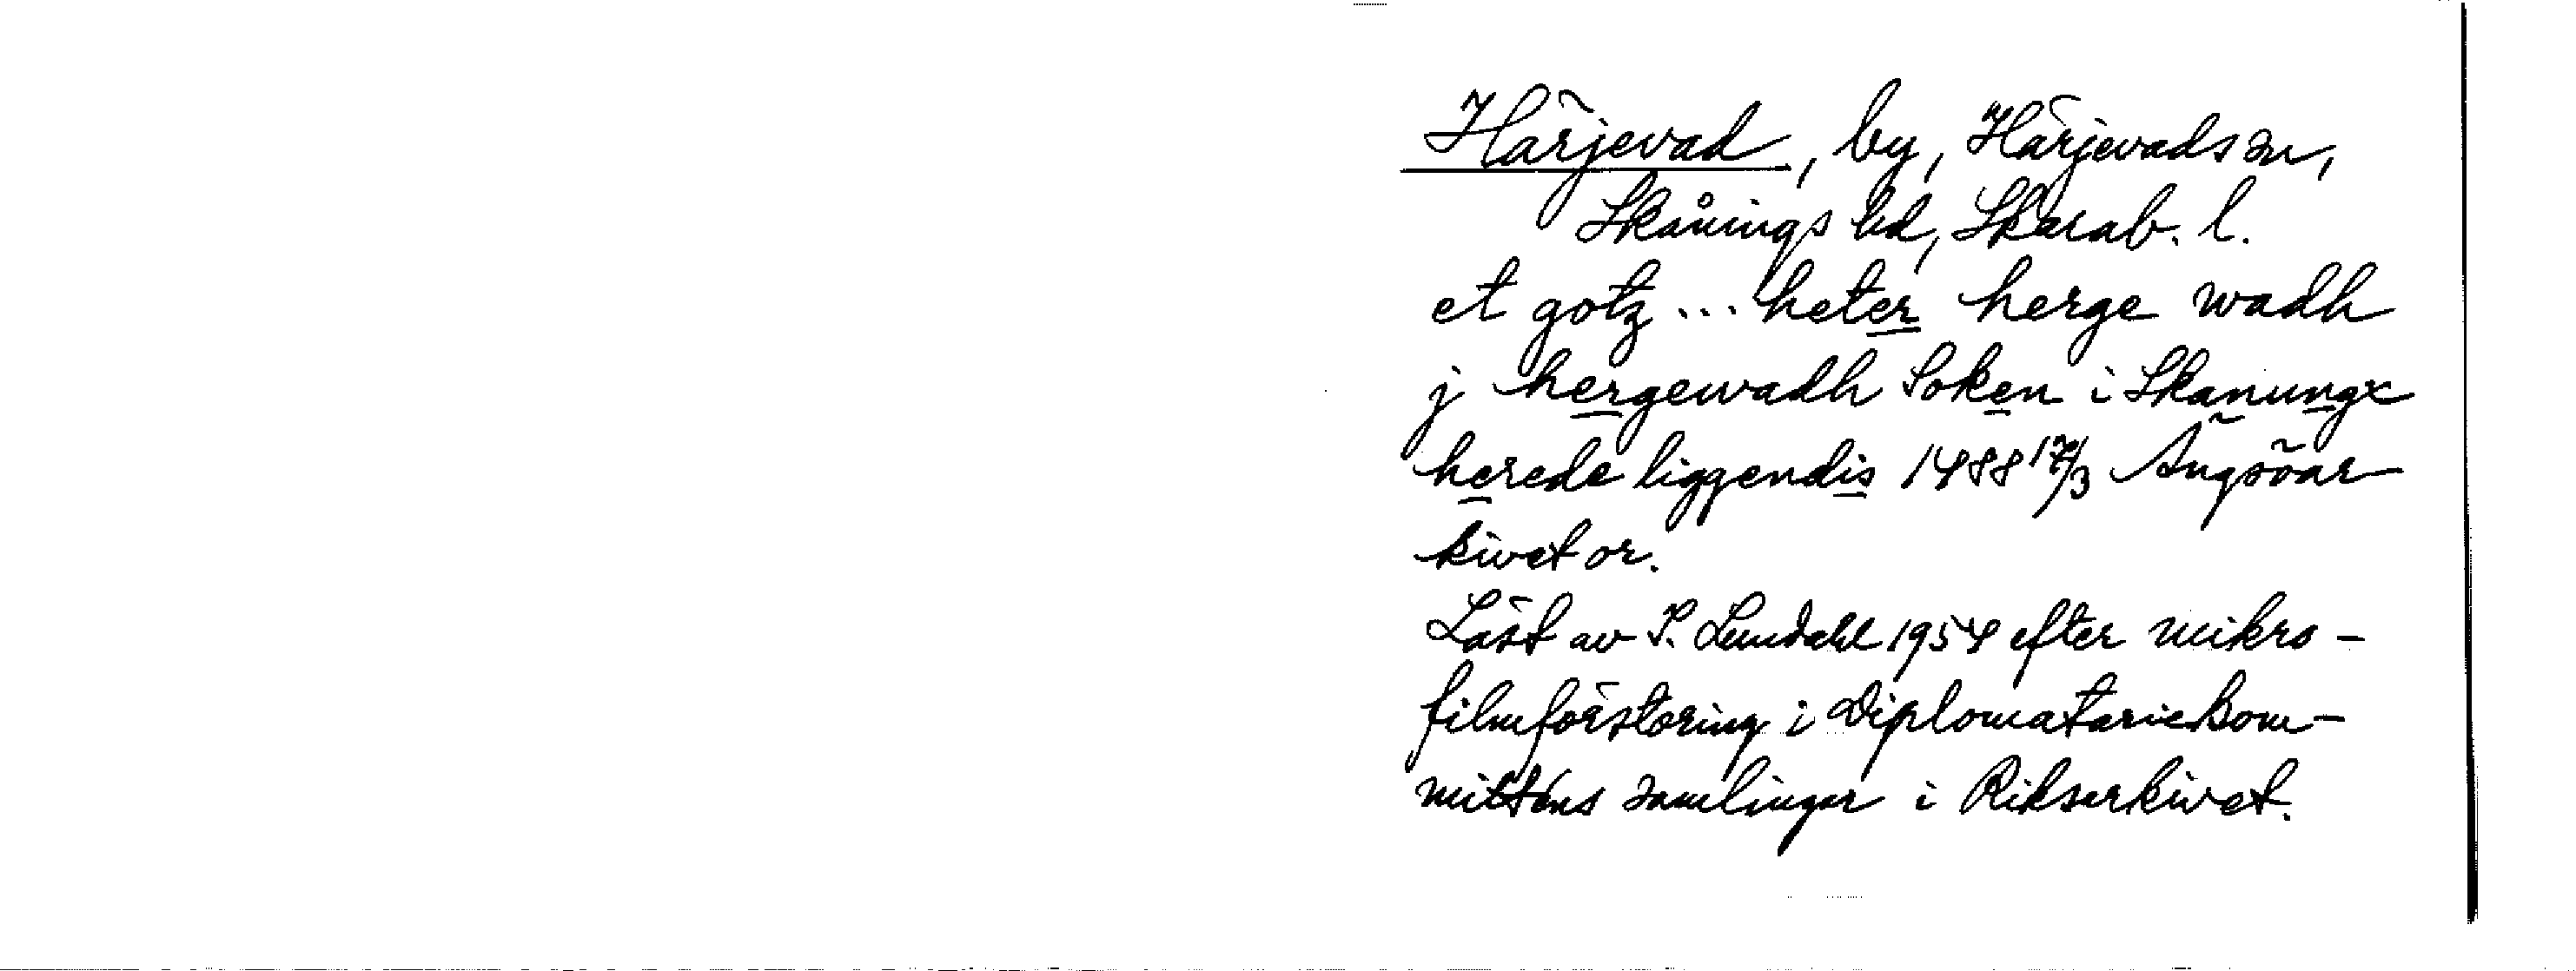 Härjevad, by, Härjevads sn,
Skånings hd, Skarab. l.
et gotz ... heter herge wadh
j hergewadh Soken i Skanungx
herede liggendis 1488 17/3 Ängsöar-
kivet or.
Läst av I. Lundahl 1954 efter mikro-
filmförstoring i Diplomatariekom-
mitténs samlingar i Riksarkivet.